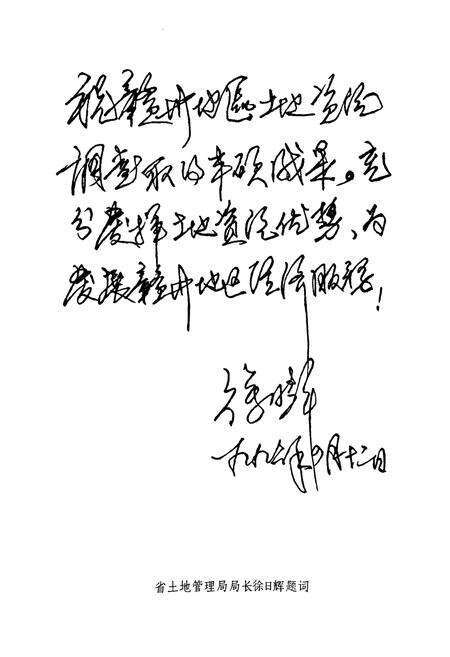 祝赣州地區土地资源
调查取得丰硕成果。充
分发挥土地资源优势、为
发展赣州地区经济服务!
徐日辉
一九九六年 月十二日
省土地管理局局长徐日辉题词